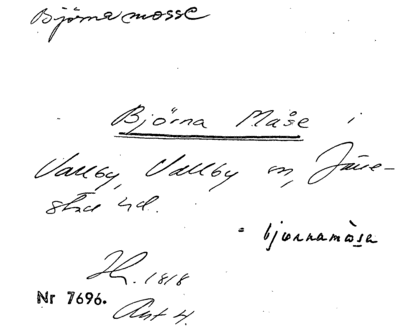 Björnamosse
Björna Måse i
Vallby, Vallby sn, Järre-
stad hd.
bjørnamåsa
Hy. 1818
Nr 7696.
Akt 4.